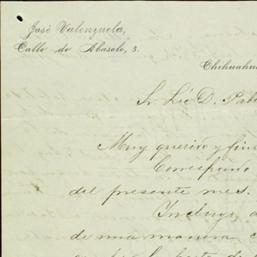 José Valenzuela,
Calle de Abasolo, 3.
Chihuahua
Sr. Lic. D. Pabl
Muy querido y fin
Correspond
del presente mes.
Incluyo a
de una manera